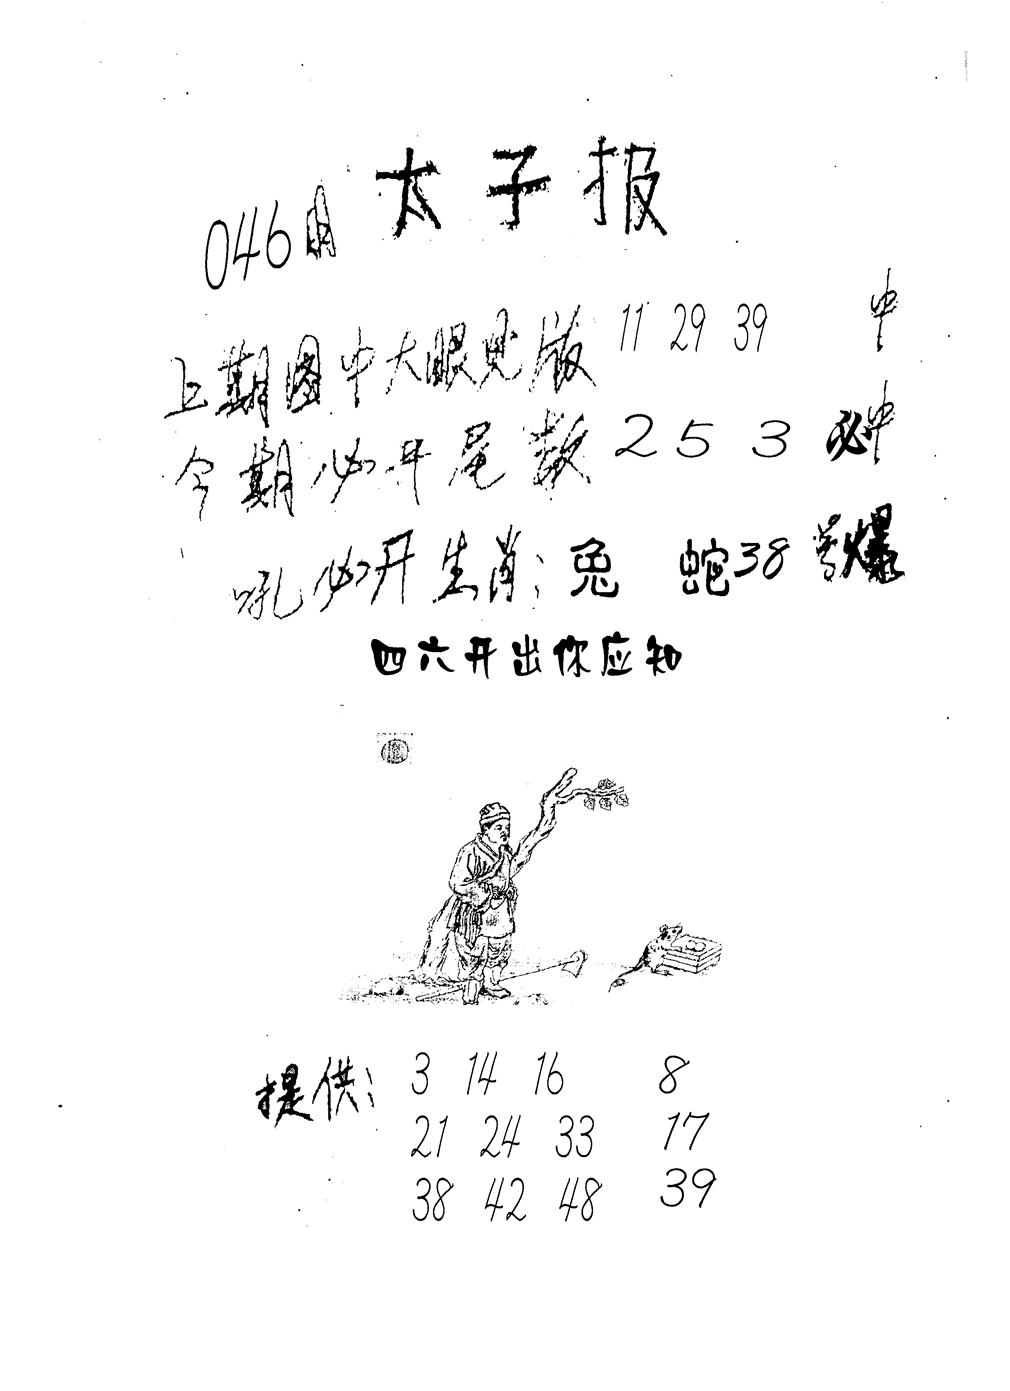 太子报
046期
上期图中大眼见版 11 29 39 中
今期必开尾数 2 5 3 必中
吼必开生肖：兔 蛇 38 号爆
四六开出你应知
提供： 3 14 16 8
21 24 33 17
38 42 48 39